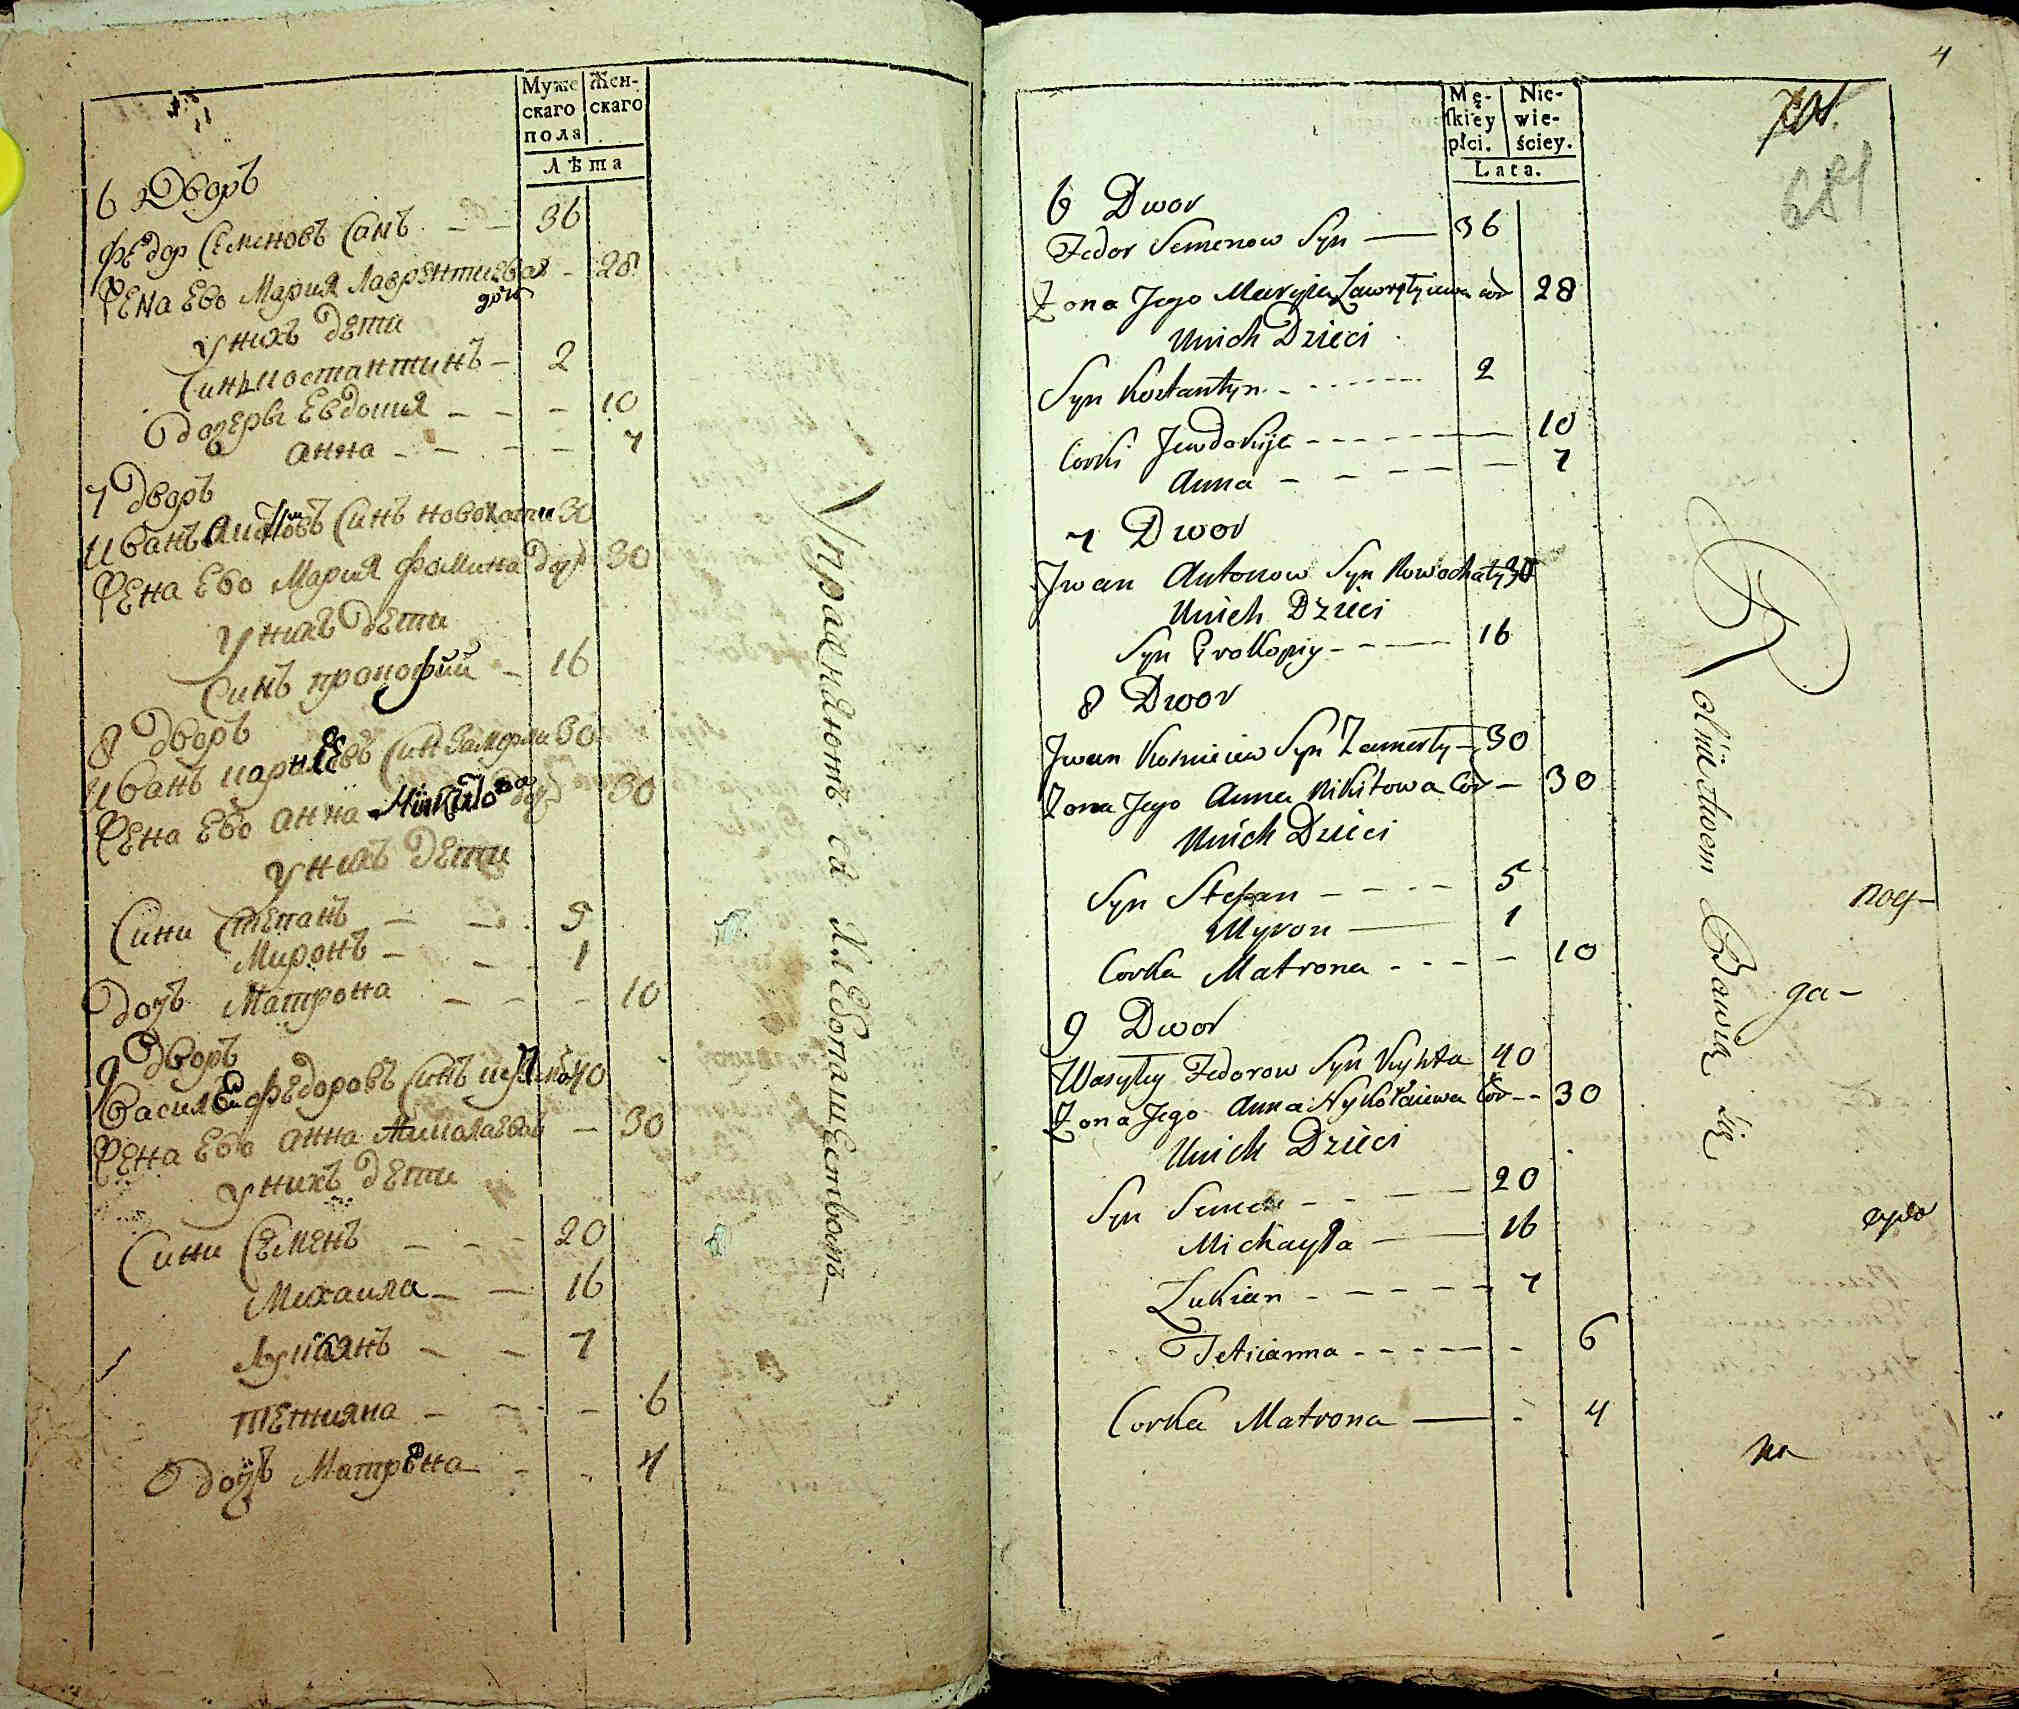 Муже
скаго
пола
Жен-
скаго
Лѣта
6 Дворъ
Федор Семеновъ Синъ 36
Жена Ево Мария Лаврентиева 28
дочъ
У нихъ дети
Синъ Костантинъ 2
Дочери Евдокия 10
Анна 7
7 Дворъ
Иванъ Антоновъ Синъ Новохати 30
Жена Ево Мария Фомина доч 30
У нихъ дети
Синъ Прокофий 16
8 Дворъ
Иванъ Син Замерли 30
Жена Ево Анна Никитова доч 30
У нихъ дети
Сини Степанъ 5
Миронъ 1
Дочъ Матрона 10
9 Дворъ
Василей Федоровъ Синъ 40
Жена Ево Анна Николаевай 30
У нихъ дети
Сини Семенъ 20
Михаила 16
Лукиянъ 7
Тетияна 6
Дочъ Матрона 4
Упражнюютъ ся Хлебопашествомъ
4
681
Mę-
skiey
płci.
Nie-
wie-
ściey.
Lata.
6 Dwor
Fedor Semenow Syn 36
Zona Jego Maryia Lawrętyiewa cor 28
Unich Dzieci
Syn Kostantyn 2
Corki Jewdokija 10
Anna 7
7 Dwor
Jwan Antonow Syn Nowochaty 30
Unich Dzieci
Syn Prokopiy 16
8 Dwor
Jwan Korniiew Syn Zamerly 30
Zona Jego Anna Nikitowa Cor 30
Unich Dzieci
Syn Stepan 5
Myron 1
Corka Matrona 10
9 Dwor
Wasyley Fedorow Syn 40
Zona Jego Anna Nykołaiewa Cor 30
Unich Dzieci
Syn Semen 20
Michayła 16
Łukian 7
Teticianna 6
Corka Matrona 4
Rolnictwem Bawią się
под-
да-
на